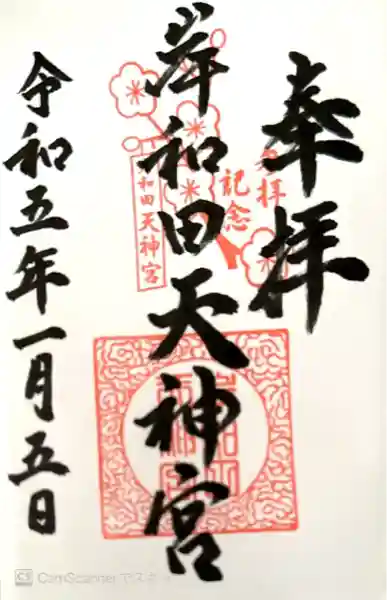 奉拝
参拝
記念
岸和田天神宮
岸和田天神宮
令和五年一月五日
CS CamScanner でスキャン